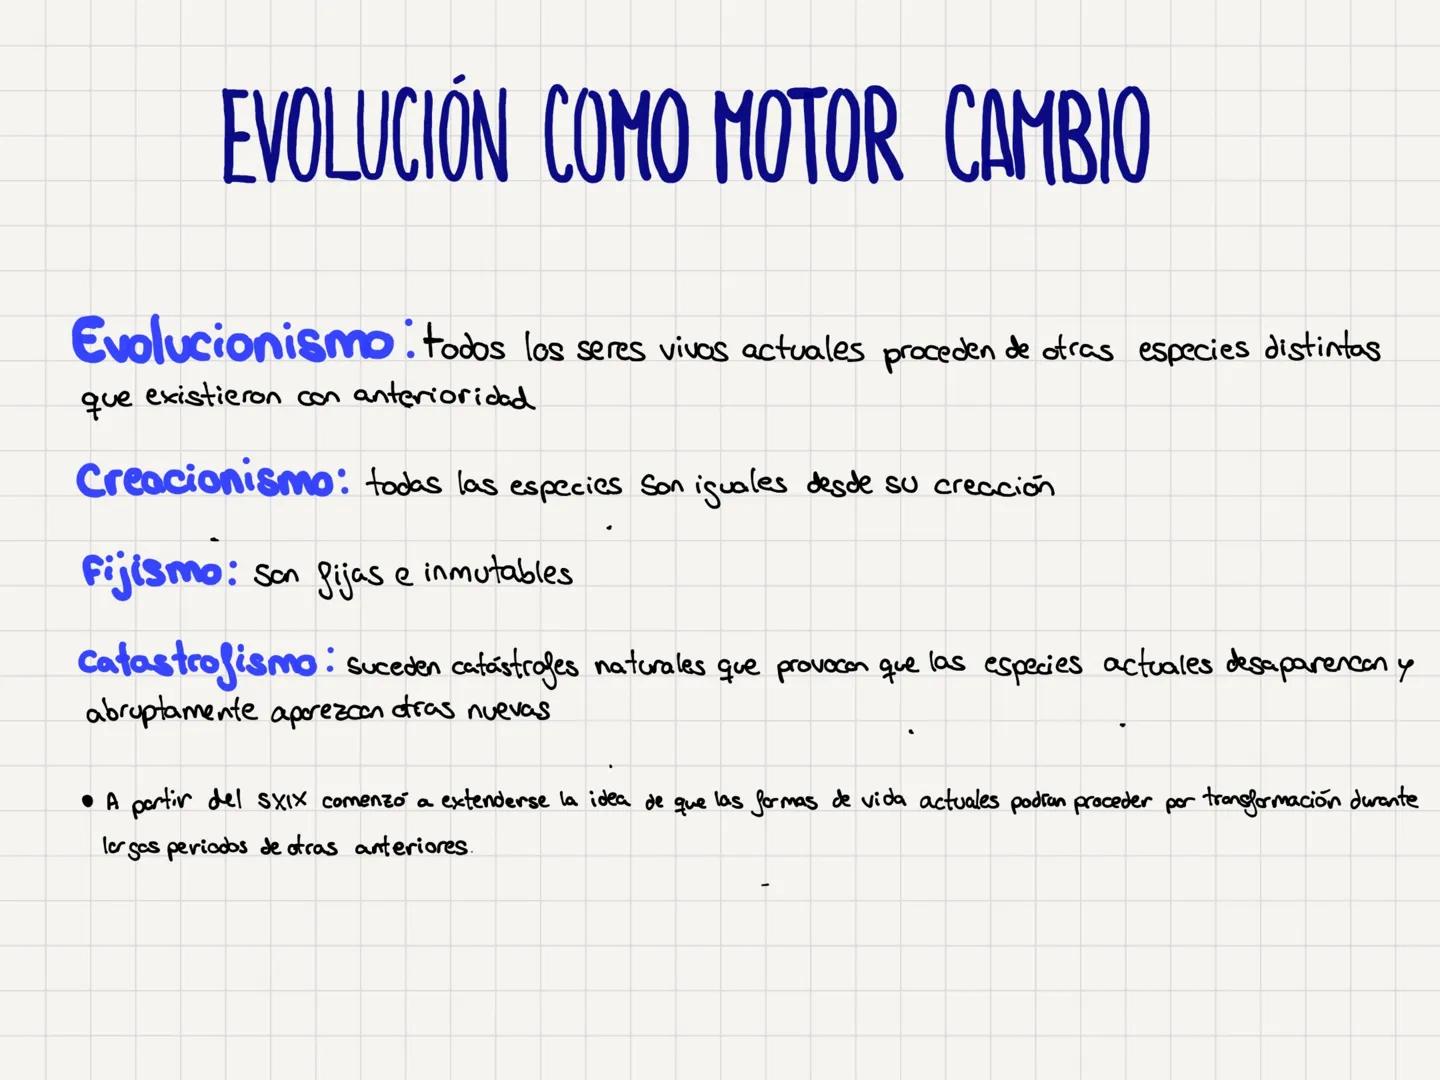 EVOLUCIÓN COMO MOTOR CAMBIO
Evolucionismo: todos los seres vivos actuales proceden de otras especies distintas
que existieron con anterioridad
Creacionismo: todas las especies son iguales desde su creación
Fijismo: son fijas e inmutables
Catastrofismo: suceden catástrofes naturales que provocan que las especies actuales desaparencan y
abruptamente aparezcan otras nuevas
• A partir del SXIX comenzó a extenderse la idea de que las formas de vida actuales podían proceder por transformación durante
largos periodos de otras anteriores.